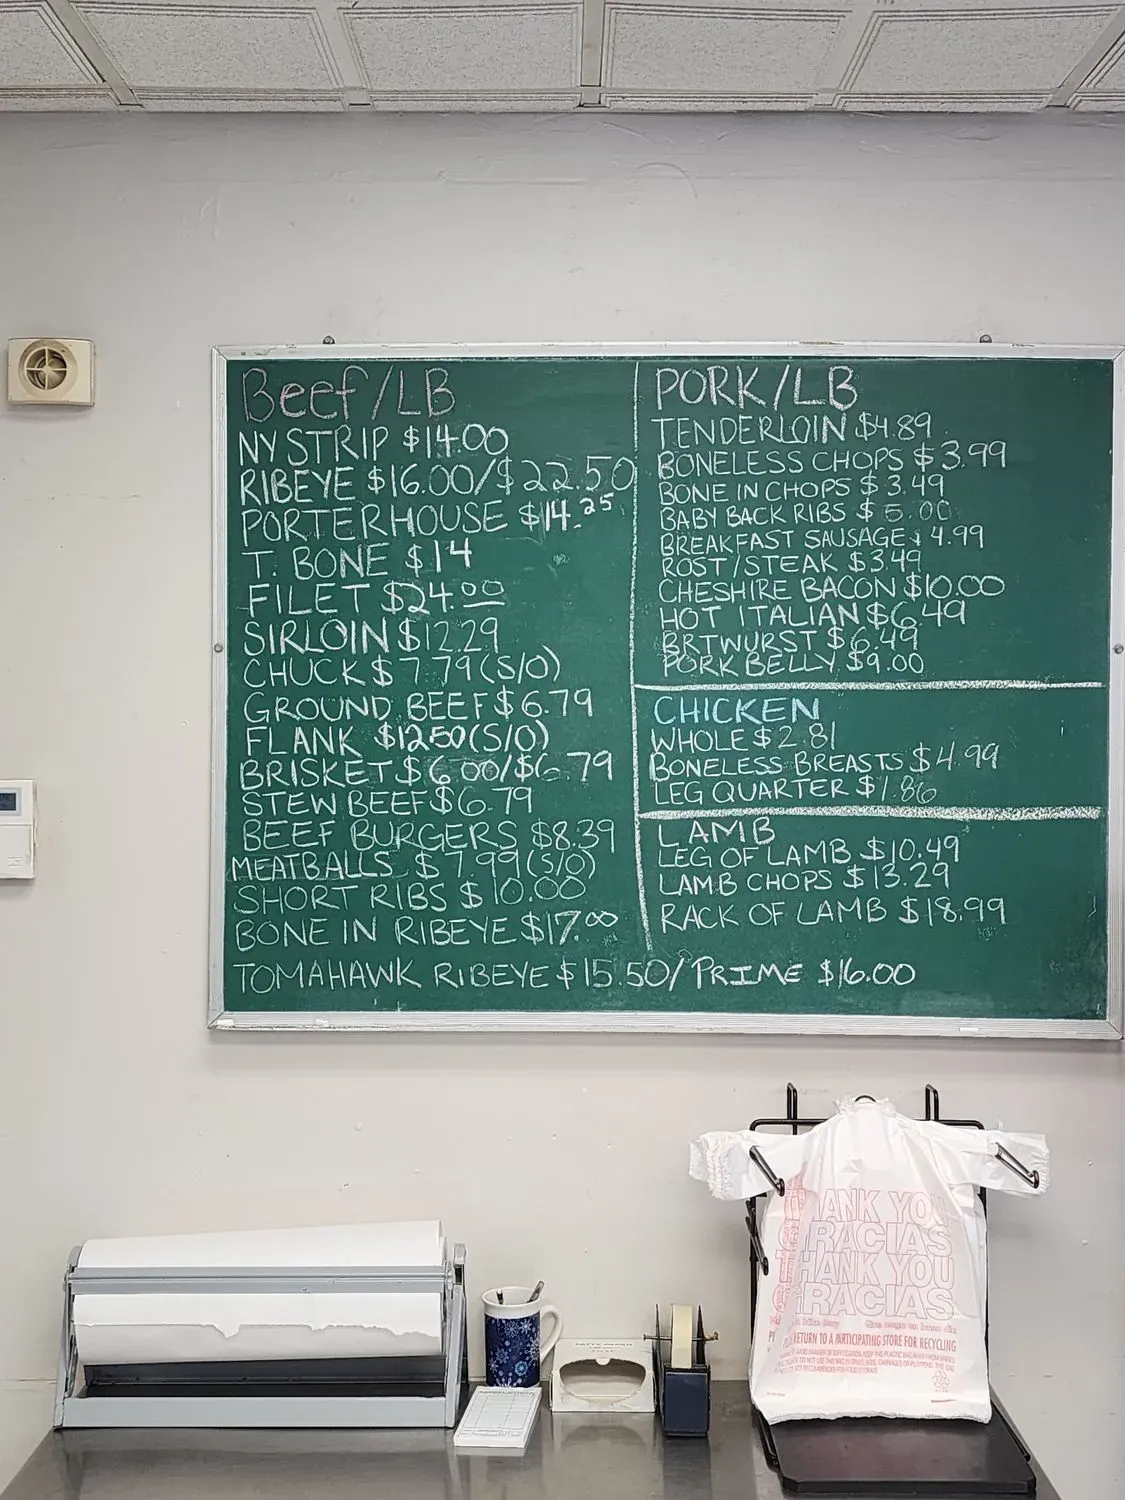 Beef/LB
NY STRIP $14.00
RIBEYE $16.00/$22.50
PORTERHOUSE $14.25
T. BONE $14
FILET $24.00
SIRLOIN $12.29
CHUCK $7.79 (S/O)
GROUND BEEF $6.79
FLANK $12.50 (S/O)
BRISKET $6.00/$6.79
STEW BEEF $6.79
BEEF BURGERS $8.39
MEATBALLS $7.99 (S/O)
SHORT RIBS $10.00
BONE IN RIBEYE $17.00
TOMAHAWK RIBEYE $15.50/PRIME $16.00
PORK/LB
TENDERLOIN $4.89
BONELESS CHOPS $3.99
BONE IN CHOPS $3.49
BABY BACK RIBS $5.00
BREAKFAST SAUSAGE $4.99
ROST/STEAK $3.49
CHESHIRE BACON $10.00
HOT ITALIAN $6.49
BRTWURST $6.49
PORK BELLY $9.00
CHICKEN
WHOLE $2.81
BONELESS BREASTS $4.99
LEG QUARTER $1.86
LAMB
LEG OF LAMB $10.49
LAMB CHOPS $13.29
RACK OF LAMB $18.99
HANK YOU
RACIAS
HANK YOU
RACIAS
RETURN TO A PARTICIPATING STORE FOR RECYCLING